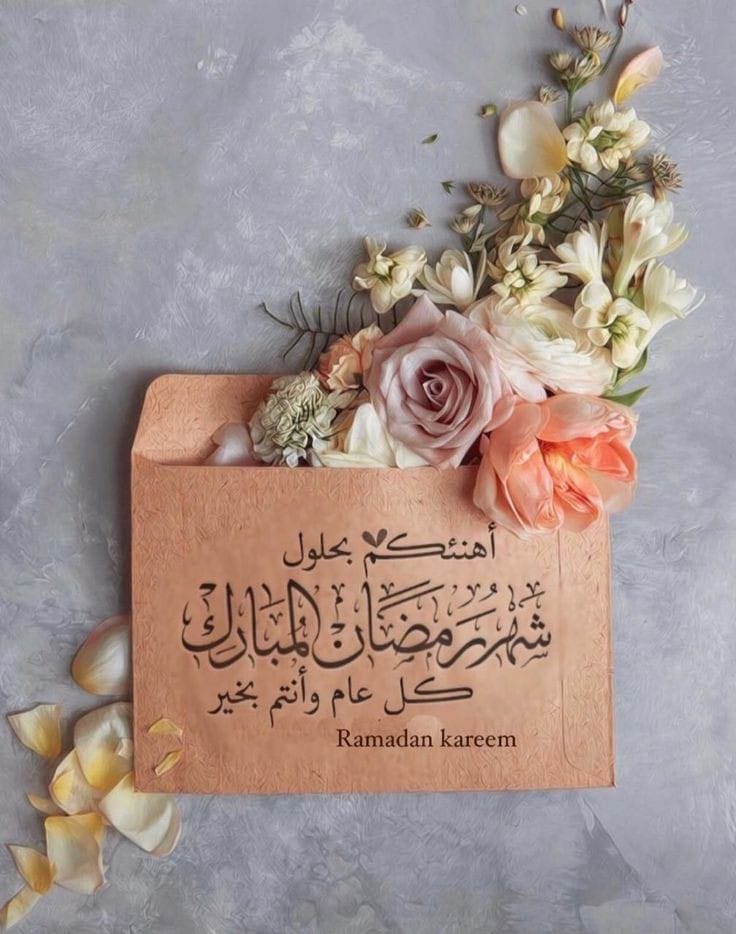 أهنئكم بحلول
شَهْرُ رَمَضَانَ المُبَارَكْ
كل عام وأنتم بخير
Ramadan kareem